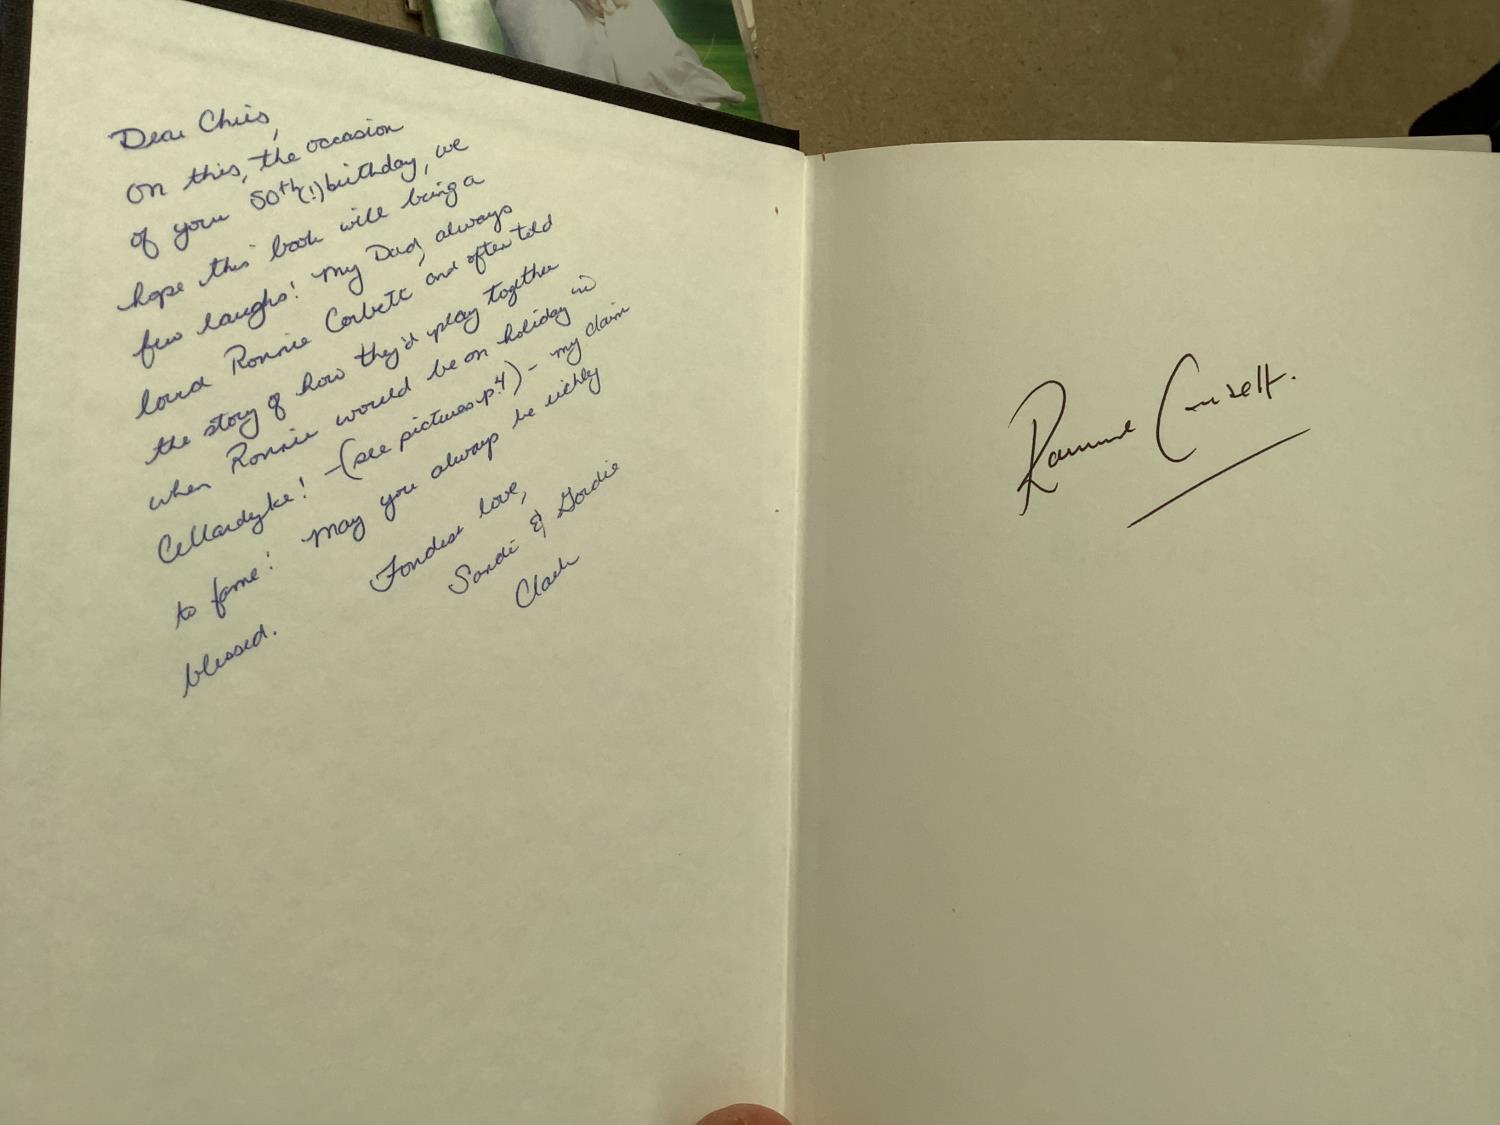 Dear Chris,
On this, the occasion
of your 50th(!) birthday, we
hope this book will bring a
few laughs! My Dad always
loved Ronnie Corbett and often told
the story of how they'd play together
when Ronnie would be on holiday in
Cellardyke! - (see pictures p.4) - my claim
to fame! May you always be richly
blessed.
Fondest love,
Sandi & Gordie
Ronnie Corbett.